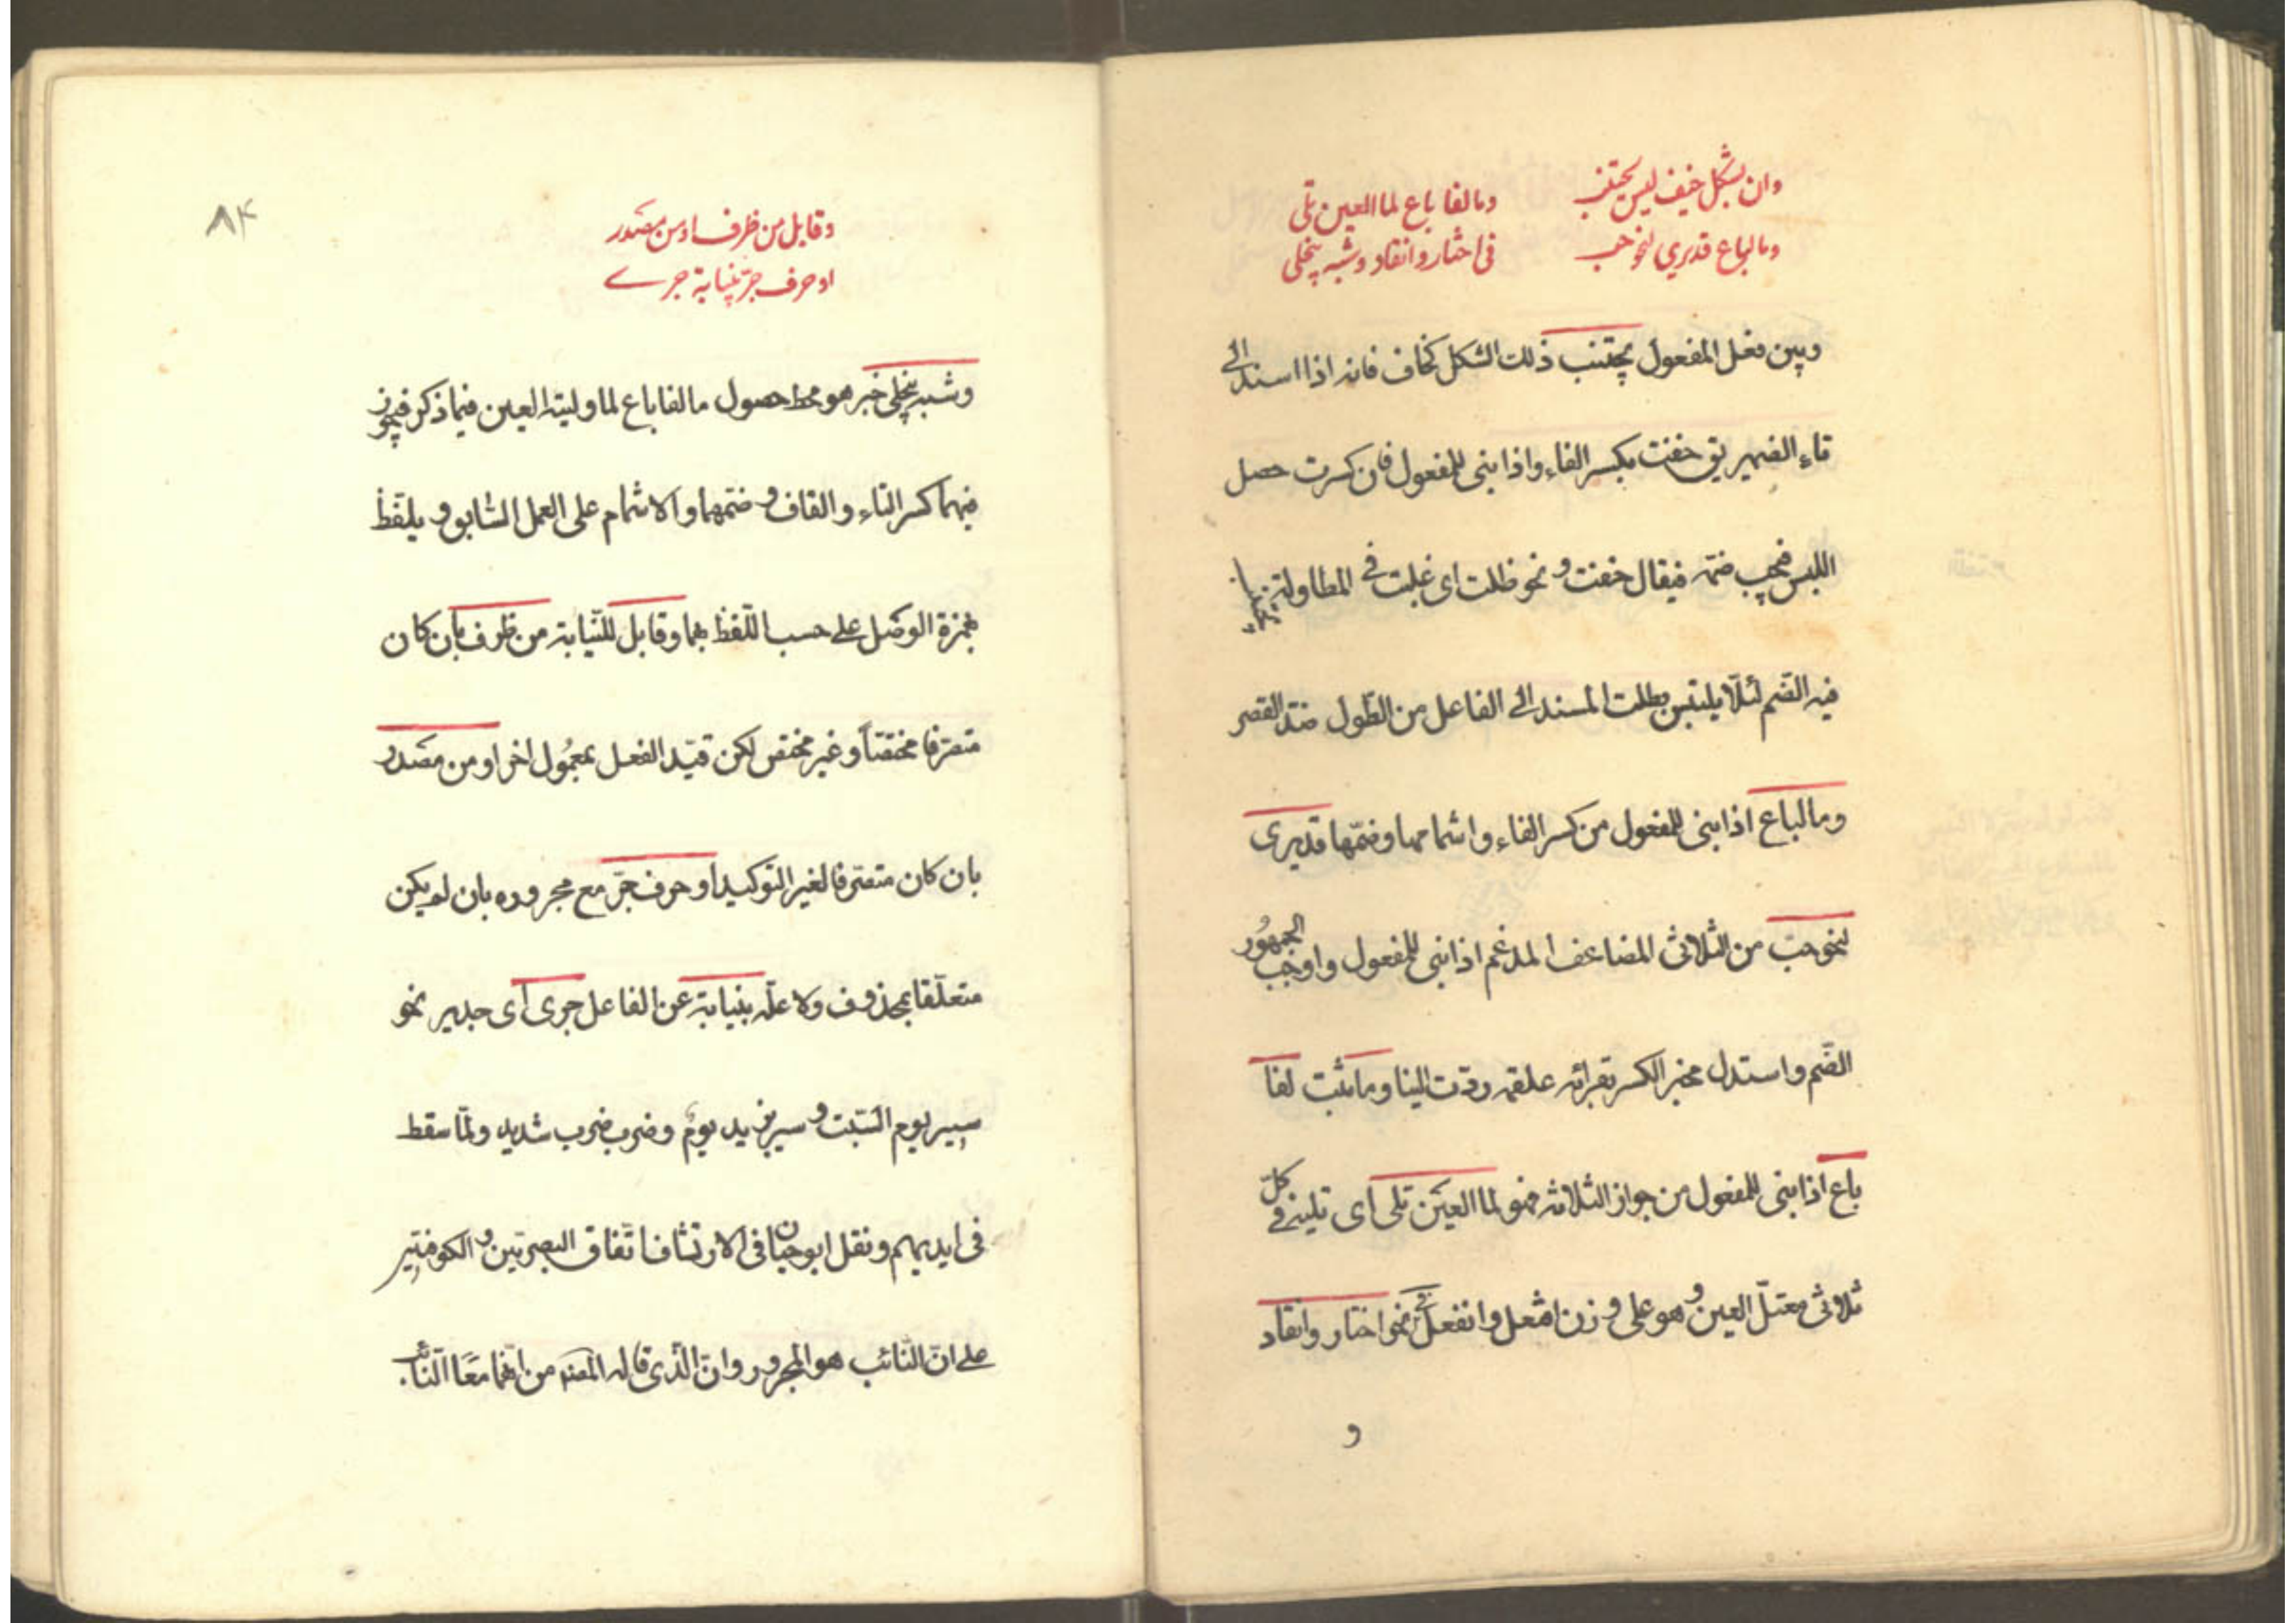 وان بشكل خيف لبس يجتنب
وما لباع قد يرى لنحو حب
وما لفا باع لما العين تلى
فى اختار وانقاد وشبه ينجلى
وبين فعل المفعول يجتنب ذلك الشكل كخاف فانه اذا اسند الى
تاء الضمير يق خفت بكسر الفاء واذا بنى للمفعول فان كسرت حصل
اللبس فيجب ضمه فيقال خفت و نحو طلت اى غلبت فى المطاولة يجتنب
فيه الضم لئلا يلتبس بطلت المسند الى الفاعل من الطول ضد القصر
وما لباع اذا بنى للمفعول من كسر الفاء واشمامها وضمها قد يرى
لنحو حب من الثلاثى المضاعف المدغم اذا بنى للمفعول واوجب الجمهور
الضم واستدل مجيز الكسر بقرائه علقمه ردت الينا وما ثبت لفا
باع اذا بنى للمفعول من جواز الثلاثه فهو لما العين تلى اى تليه فى كل
ثلاثى معتل العين و هو على وزن افتعل وانفعل نحو اختار وانقاد
و
٨٤
وقابل من ظرف او من مصدر
او حرف جر بنيابة حرى
وشبه ينجلى خبر هو محط حصول ما لفا باع لما وليته العين فيما ذكر فيجوز
فيهما كسر التاء والقاف و ضمهما والاشمام على العمل السابق و يلفظ
بهمزة الوصل على حسب اللفظ بهما وقابل للنيابة من ظرف بان كان
متصرفا مختصا او غير مختص لكن قيد الفعل بمعمول اخر او من مصدر
بان كان متصرفا لغير التوكيد او حرف جر مع مجروره بان لم يكن
متعلقا بمحذوف ولا علة بنيابة عن الفاعل حرى اى جدير نحو
سير يوم السبت و سير بزيد يوم وضرب ضرب شديد ولما سقط
فى ايديهم ونقل ابو حيان فى الارتشاف اتفاق البصريين و الكوفيين
على ان النائب هو المجرور وان الذى قاله المصنف من انهما معا النائب